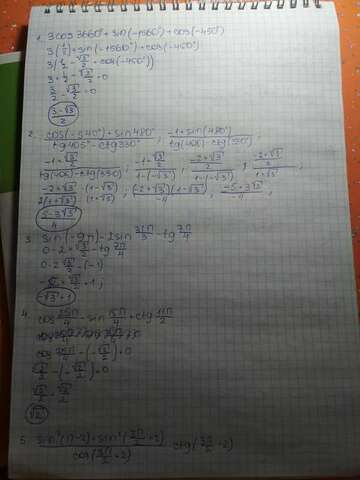 1. 3cos3660°+sin(-1560°)+cos(-450°)
3(1/2)+sin(-1560°)+cos(-450°)
3(1/2-√3/2+cos(-450°))
3·1/2-√3/2=0
3/2-√3/2=0
3-√3/2
2. cos(-540°)+sin480°/tg405°-ctg330°; -1+sin(480°)/tg(405)-ctg(330°);
-1+√3/2/tg(405)-ctg(330); -1+√3/2/1-(-√3); -2+√3/2/1-(-√3); -2+√3/2/1+√3;
-2+√3/2(1+√3)·(1-√3)/(1-√3); (-2+√3)(1-√3)/-4; -5+3√3/-4;
5-3√3/4
3. sin(-9π)-2sin 31π/3-tg 7π/4
0-2·√3/2-tg 7π/4
0-2√3/2-(-1)
-√3+1;
-√3+1
4. cos 25π/4-sin 15π/4+ctg 11π/2
cos 25π/4-(-√2/2)+0
√2/2-(-√2/2)+0
√2/2+√2/2
√2
5. sin²(π-2)+sin²(3π/2+2)/cos(3π/2+2) · ctg(3π/2-2)